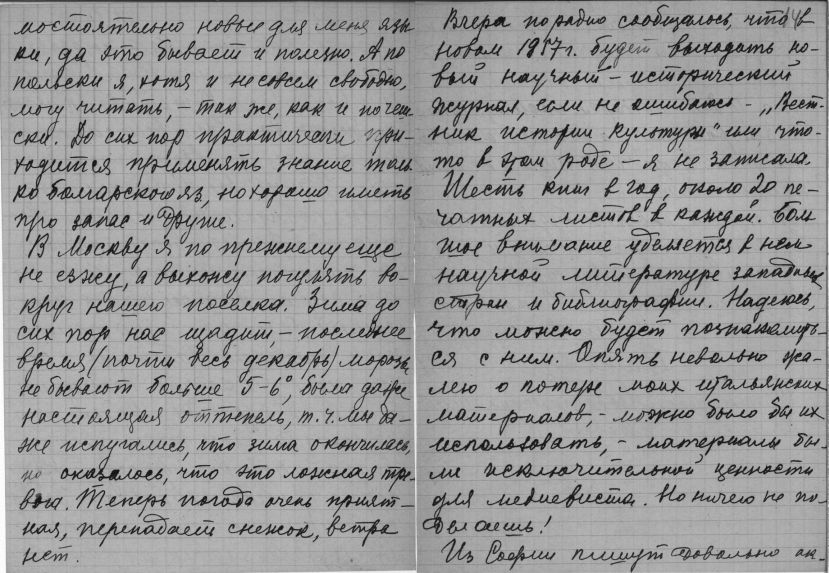 мостоятельно новые для меня язы-
ки, да это бывает и полезно. А по
польски я, хотя и не совсем свободно,
могу читать, – так же, как и по чеш-
ски. До сих пор практически при-
ходится применять знание толь-
ко болгарского яз, но хорошо иметь
про запас и другие.
В Москву я по прежнему еще
не езжу, а выхожу погулять во-
круг нашего поселка. Зима до
сих пор нас щадит, – последнее
время (почти весь декабрь) морозы
не бывают больше 5-6°, была даже
настоящая оттепель, т.ч. мы да-
же испугались, что зима окончилась,
но оказалось, что это ложная тре-
вога. Теперь погода очень прият-
ная, перепадает снежок, ветра
нет.
Вчера по радио сообщалось, что в
новом 1957 г. будет выходить но-
вый научный – исторический
журнал, если не ошибаюсь – „Вест-
ник истории культуры" или что-
то в этом роде – я не записала.
Шесть книг в год, около 20 пе-
чатных листов в каждой. Боль
шое внимание уделяется в нем
научной литературе западных
стран и библиографии. Надеюсь,
что можно будет познакомить-
ся с ним. Опять невольно жа-
лею о потере моих итальянских
материалов, – можно было бы их
использовать, – материалы бы-
ли исключительной ценности
для медиевиста. Но ничего не по-
делаешь!
Из Софии пишут довольно ак-